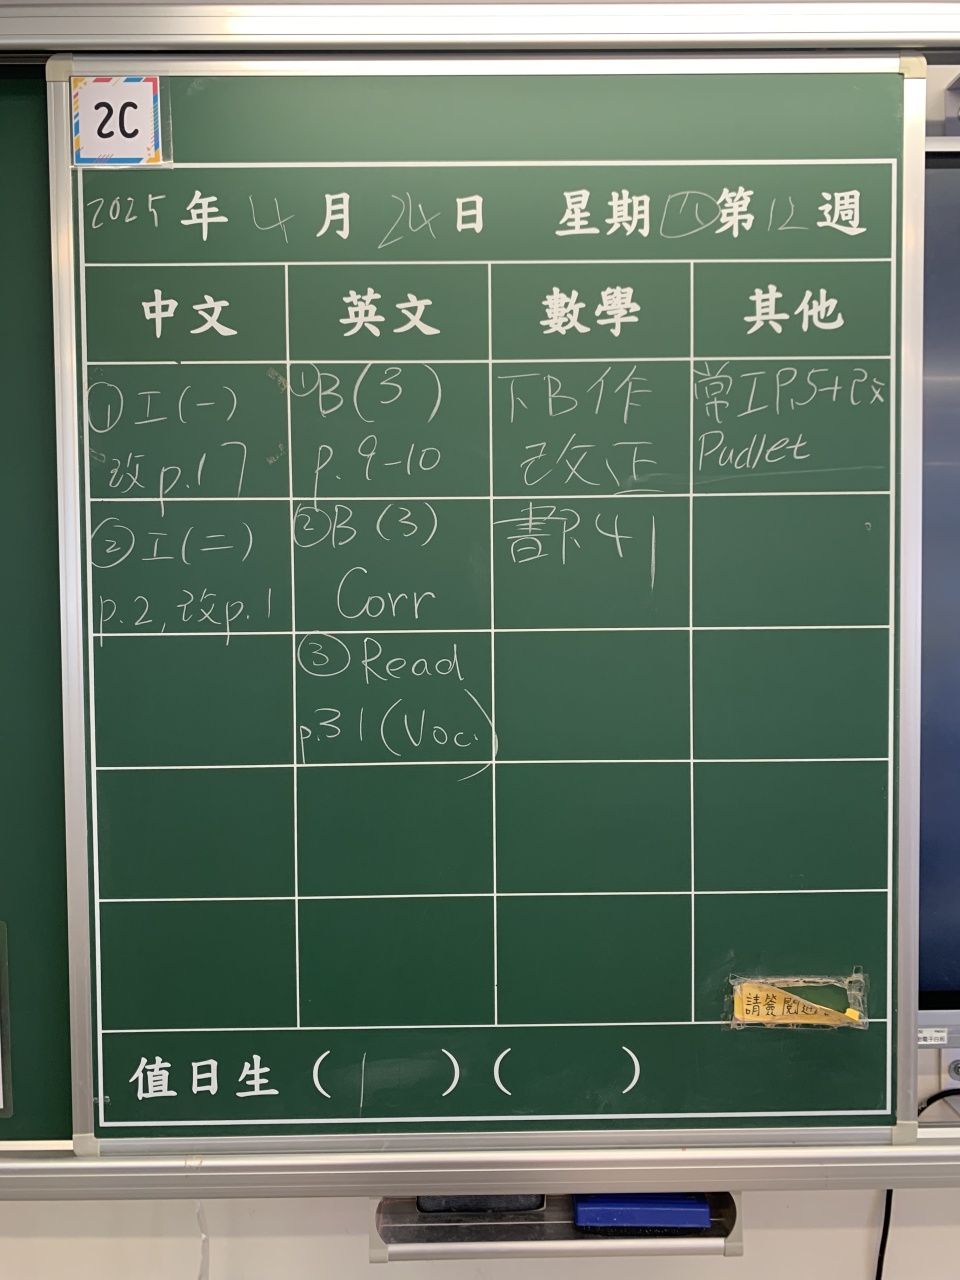 2C
2025年4月24日 星期四第12週
中文 英文 數學 其他
①工(一)
改p.17
①B(3)
p.9-10
下B作
改正
常工P.5+改
Padlet
②工(二)
p.2,改p.1
②B(3)
Corr
書P.41
③Read
p.31(Voc.)
請簽閱通
值日生(1)( )